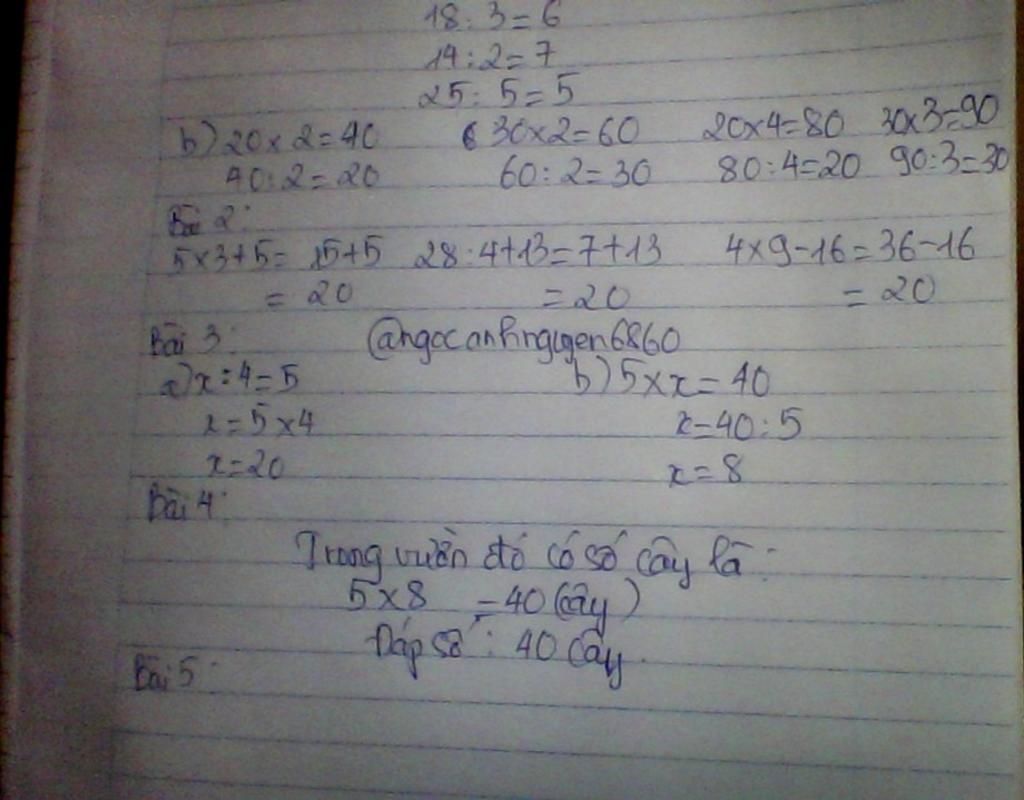 18 : 3 = 6
14 : 2 = 7
25 : 5 = 5
b) 20 x 2 = 40 30 x 2 = 60 20 x 4 = 80 30 x 3 = 90
40 : 2 = 20 60 : 2 = 30 80 : 4 = 20 90 : 3 = 30
Bài 2:
5 x 3 + 5 = 15 + 5 28 : 4 + 13 = 7 + 13 4 x 9 - 16 = 36 - 16
= 20 = 20 = 20
Bài 3: @ngocanhnguyen6860
a) x : 4 = 5 b) 5 x x = 40
x = 5 x 4 x = 40 : 5
x = 20 x = 8
Bài 4:
Trong vườn đó có số cây là:
5 x 8 = 40 (cây)
Đáp số: 40 cây.
Bài 5: